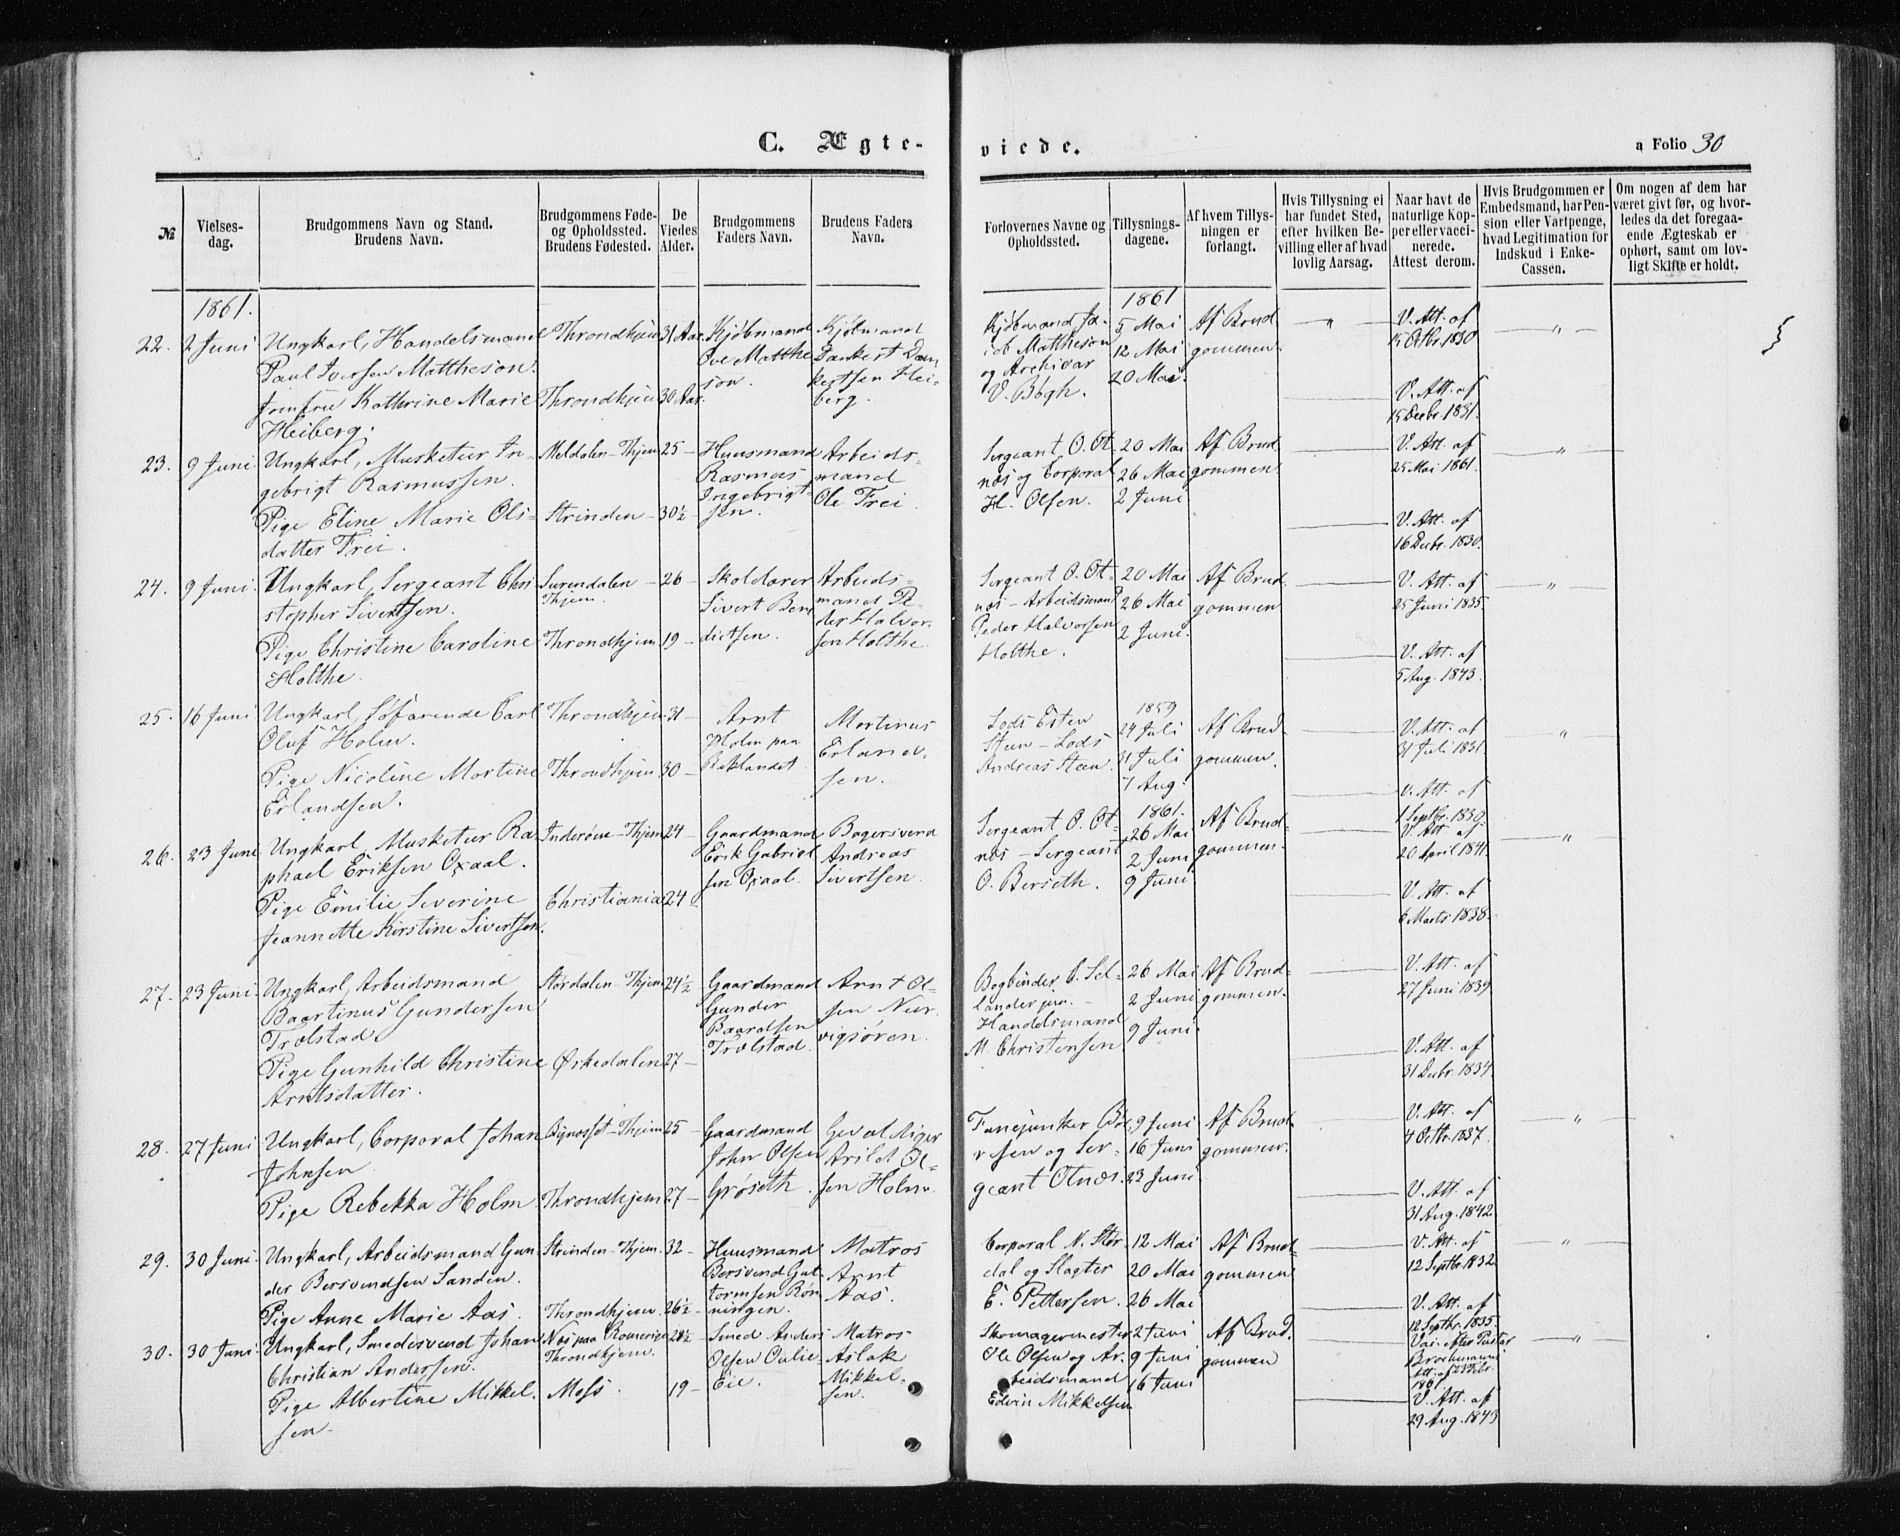 C. Ægte-
viede.
a Folio 30
№
Vielses-
dag.
Brudgommens Navn og Stand.
Brudens Navn.
Brudgommens Føde-
og Opholdssted.
Brudens Fødested.
De
Viedes
Alder.
Brudgommens
Faders Navn.
Brudens Faders
Navn.
Forlovernes Navne og
Opholdssted.
Tillysnings-
dagene.
Af hvem Tillys-
ningen er
forlangt.
Hvis Tillysning ei
har fundet Sted,
efter hvilken Be-
villing eller af hvad
lovlig Aarsag.
Naar havt de
naturlige Kop-
per eller vacci-
nerede.
Attest derom.
Hvis Brudgommen er
Embedsmand, har Pen-
sion eller Vartpenge,
hvad Legitimation for
Indskud i Enke-
Cassen.
Om nogen af dem har
været givt før, og hvor-
ledes da det foregaa-
ende Ægteskab er
ophørt, samt om lov-
ligt Skifte er holdt.
1861.
22.
2 Juni
Ungkarl, Handelsmand
Paul Iversen Mattheson.
Jomfrue Kathrine Marie
Heiberg.
Throndhjem
Throndhjem
31 Aar
30 Aar.
Kjøbmand
Ove Matthe
son.
Kjøbmand
Dankert Dan
kertsen Hei-
berg.
Kjøbmand Ja-
cob Mattheson
og Archivar
V. Bøgh.
1861
5 Mai
12 Mai
20 Mai.
Af Brud
gommen
"
V. Att. af
15 Octbr. 1830
V. Att. af
15 Decbr. 1831.
"
23.
9 Juni
Ungkarl, Musketur In-
gebrigt Rasmussen.
Pige Eline Marie Ols-
datter Frei.
Meldalen - Thjem
Strinden
25 -
30½ -
Huusmand
Rasmus
Ingebrigt-
sen.
Arbeids-
mand
Ole Frei
Sergeant O. Ot-
næs og Corporal
H. Olsen.
20 Mai
26 Mai
2 Juni
Af Brud
gommen
V. Att. af
25 Mai 1861.
V. Att. af
16 Decbr. 1830.
"
24.
9 Juni.
Ungkarl, Sergeant Chri
stopher Sivertsen.
Pige Christine Caroline
Holthe.
Surendalen -
Thjem.
Throndhjem
26 -
19 -
Skolelærer
Sivert Bene
dictsen.
Arbeids-
mand Pe-
der Halvor-
sen Holthe.
Sergeant O. Ot-
næs - Arbeidsmand
Peder Halvorsen
Holthe.
20 Mai
26 Mai
2 Juni.
Af Brud
gommen
V. Att. af
25 Juni 1835.
V. Att. af
5 Aug. 1843.
"
25.
16 Juni
Ungkarl, Søfarende Carl
Oluf Holm.
Pige Nicoline Martine
Erlandsen.
Throndhjem
Throndhjem
31 -
30 -
Arnt
Holm paa
Baklandet.
Mortinus
Erland-
sen.
Lods Esten
Steen - Lods
Andreas Steen
1859
24 Juli
31 Juli
7 Aug.
Af Brud-
gommen.
V. Att. af
31 Juli 1831.
V. Att. af
1 Septbr. 1830.
"
26.
23 Juni
Ungkarl, Musketur Ra
phael Eriksen Oxaal.
Pige Emilie Severine
Jeannette Kirstine Sivertsen.
Inderøen - Thjem
Christiania
24 -
24 -
Gaardmand
Erik Gabriel
sen Oxaal.
Bagersvend
Andreas
Sivertsen.
Sergeant O. Ot-
næs - Sergeant
O. Berseth.
1861.
26 Mai
2 Juni
9 Juni
Af Brud-
gommen.
V. Att. af
20 April 1841.
V. Att. af
6 Marts 1838.
"
27.
23 Juni.
Ungkarl, Arbeidsmand
Baartinus Gundersen
Trolstad.
Pige Gunhild Christine
Arntsdatter.
Størdalen - Thjem
Ørkedalen
24½
27 -
Gaardmand
Gunder
Baardsen
Trolstad.
Arnt Ol-
sen
Bogbinder
lander jun. -
Handelsmand
M. Christensen
26 Mai
2 Juni
9 Juni
Af Brud-
gommen.
V. Att. af
27 Juni 1839
V. Att. af
31 Decbr. 1834
28.
27 Juni
Ungkarl, Corporal Johan
Johnsen
Pige Rebekka Holm
Bynæsset - Thjem
Throndhjem
25 -
27 -
Gaardmand
John Olsen
Grøseth.
Arild Ol-
sen Holm.
Fanejunker Bør
resen og Ser-
geant Otnæs.
9 Juni
16 Juni
23 Juni
Af Brud-
gommen.
V. Att. af
4 Octbr. 1837.
V. Att. af
31 Aug. 1842
"
29.
30 Juni.
Ungkarl, Arbeidsmand Gun-
der Bersvendsen Sanden.
Pige Anne Marie Aas.
Strinden - Thjem.
Throndhjem.
32 -
26½ -
Huusmand
Bersvend Gut-
tormsen Røn
ningen.
Matros
Arnt
Aas.
Corporal N. Stør-
dal og Slagter
E. Pettersen.
12 Mai
20 Mai
26 Mai
Af Brud-
gommen
V. Att. af
12 Septbr. 1832
V. Att. af
12 Septbr. 1835.
"
30.
30 Juni
Ungkarl, Smedesvend Johan
Christian Andersen.
Pige Albertine Mikkel-
sen.
Næs paa Romerige
Throndhjem.
Moss.
28½
19 -
Smed Anders
Olsen
Eie.
Matros
Aslak
Mikkel-
sen.
Skomagermester
Ole Olsen og Ar-
beidsmand
Edvin Mikkelsen
2 Juni
9 Juni
16 Juni
Af Brud-
gommen
Vac. efter Pastor
V. Att. af
29 Aug. 1843
"